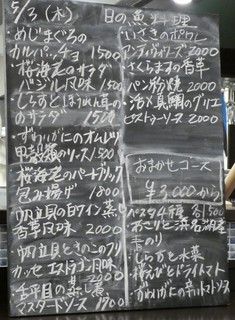 5/3(木) 日の魚料理
・めじまぐろの
カルパッチョ 1500
・桜海老のサラダ
バジル風味 1500
・しらすと
のサラダ 1500
・ずわいがにのオムレツ
甲殻類のソース 1500
・桜海老のパートブリック
包み揚げ 1800
・帆立貝の白ワイン蒸し
香草風味 2000
・帆立貝ときのこのフリ
カッセ エストラゴン風味
2000
・舌平目の蒸し煮
マスタードソース 1700
・いさきのポワレ
アンチョヴィソース 2000
・さくらますの香草
パン粉焼 2000
・活〆真鯛のグリエ
ピストゥーソース 2000
おまかせコース
¥3,000から
パスタ4種 各1500
・あさりと浜名湖産
青のり
・しらすと水菜
・桜えびとドライトマト
・ずわいがにの辛いトマトソース